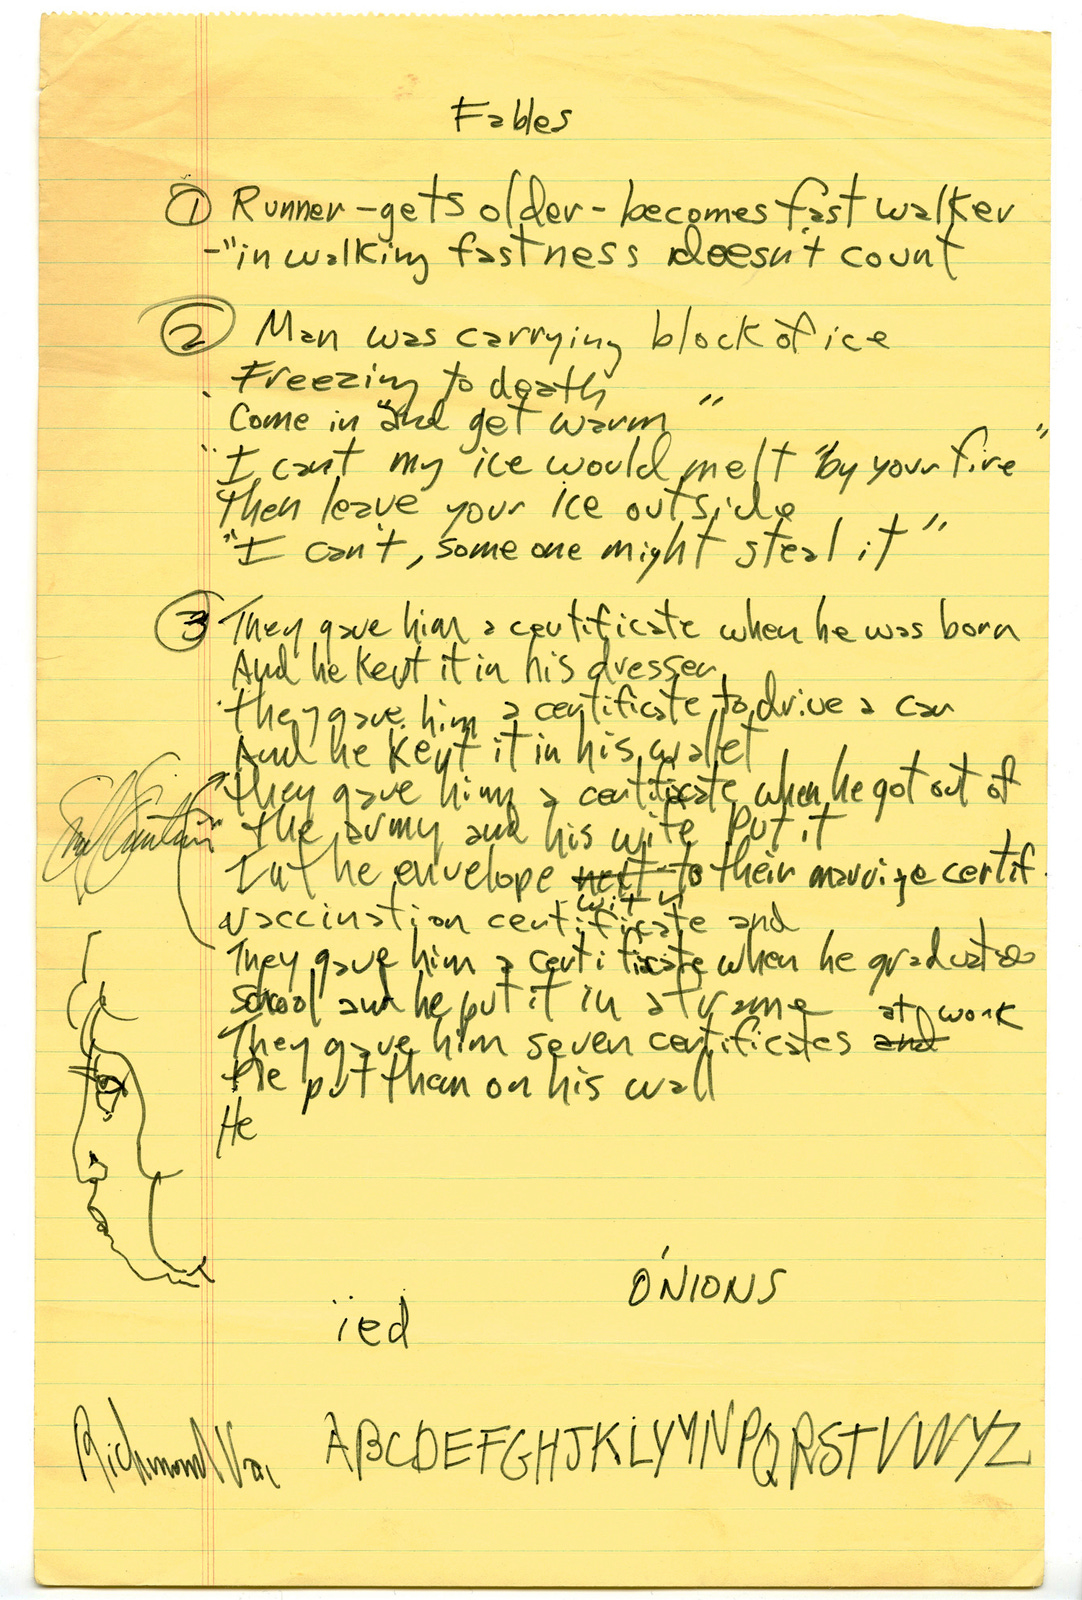 Fables
① Runner - gets older - becomes fast walker
- "in walking fastness doesn't count
② Man was carrying block of ice
Freezing to death
Come in and get warm"
"I can't my ice would melt by your fire"
Then leave your ice outside
"I can't, some one might steal it"
③ They gave him a certificate when he was born
And he kept it in his dresser
They gave him a certificate to drive a car
And he kept it in his wallet
They gave him a certificate when he got out of
the army and his wife put it
In the envelope next to their marriage certif.
with
vaccination certificate and
They gave him a certificate when he graduated
school and he put it in a frame
at work
They gave him seven certificates and
He put them on his wall
He
ONIONS
ied
Richmond Va.
ABCDEFGHJKLYMNPQRSTVWYZ